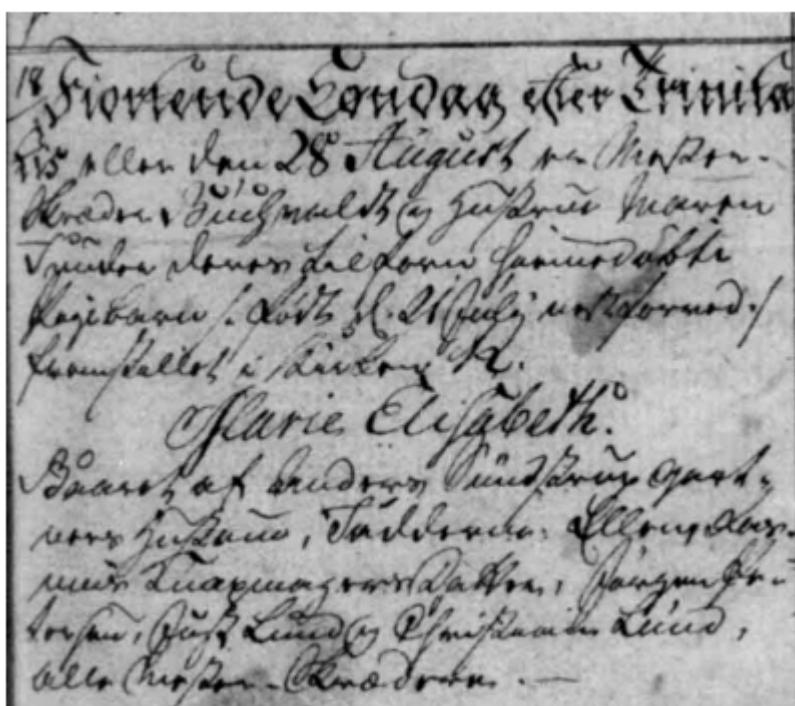 18
Fiortende Søndag efter Trinita
tis eller den 28 August er Mester-
Skræder Buchwaldt og Hustrue Maren
deres hiemedøbte
Pigebarn /: født d. 21 July nestforved :/
fremstillet i Kirken, N.
Marie Elisabeth.
Baaret af Anders Sundstrup Gart-
ners Hustrue, Fadderne: Ellen Ras-
mus Knapmagers Datter, Jørgen Pe-
tersen, Just Lund og Christian Lund,
alle Mester-Skrædere. —